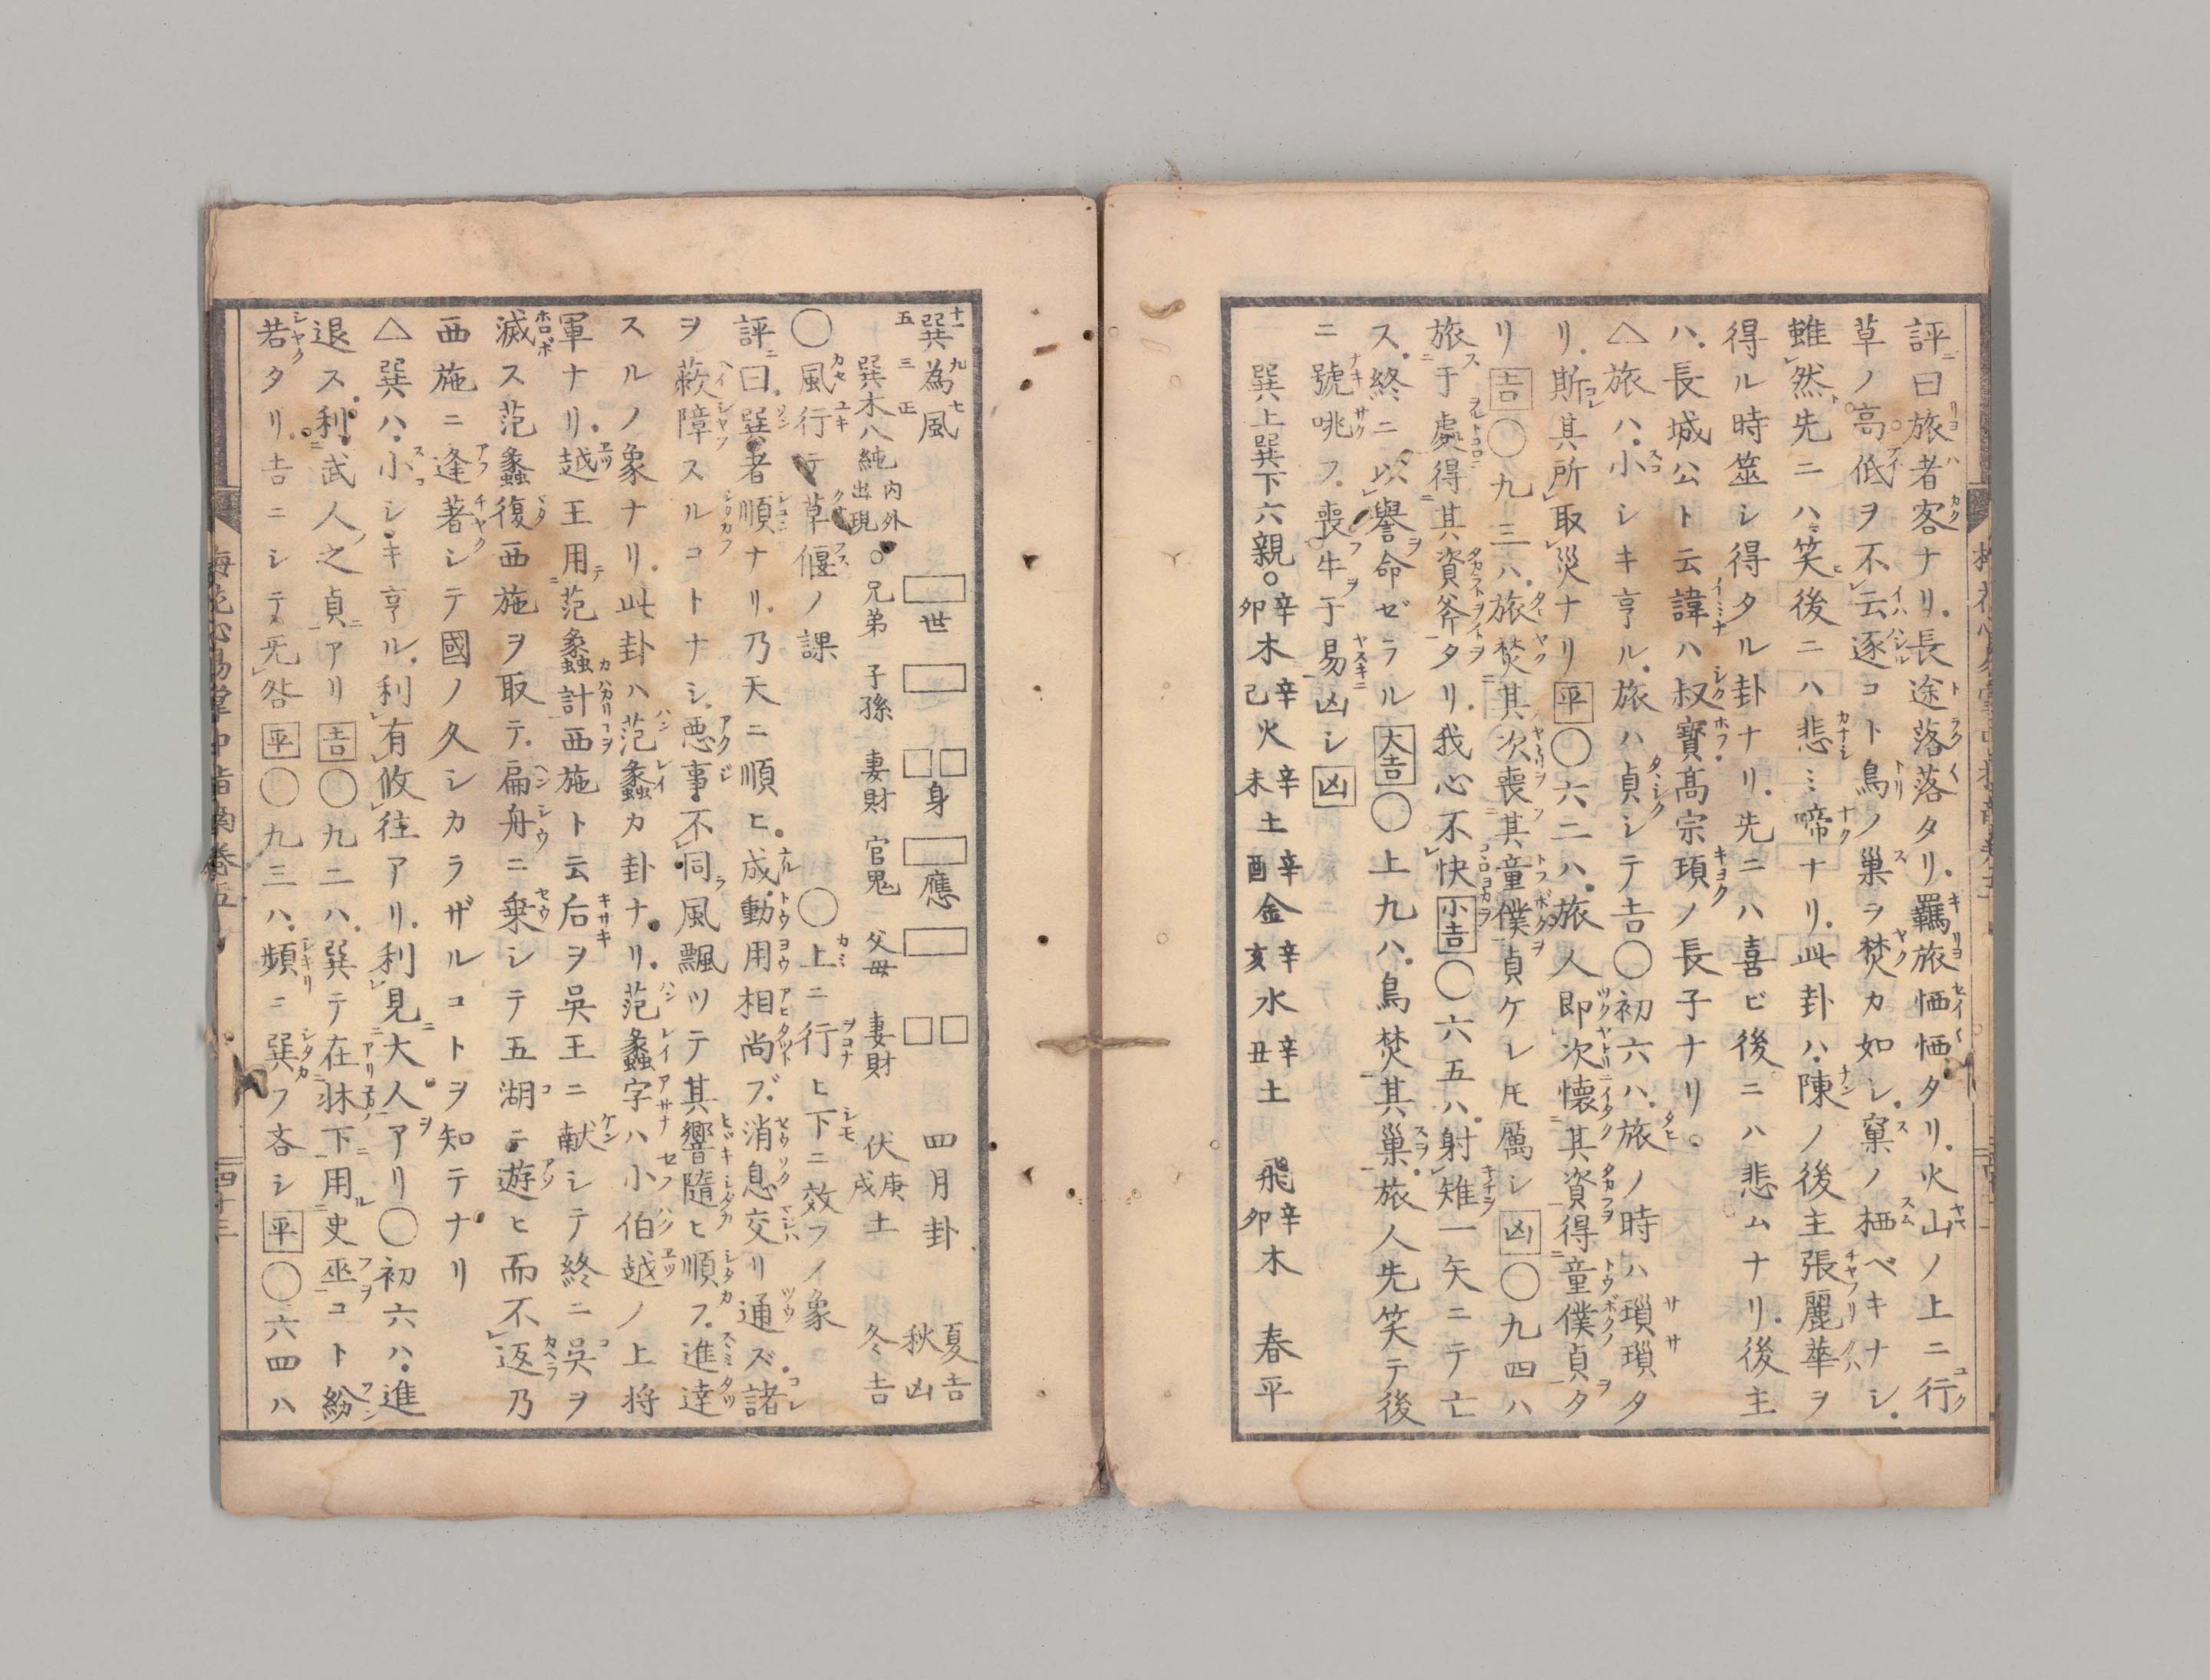 評曰旅者客ナリ長途落落タリ羈旅恓恓タリ火山ノ上ニ行
草ノ高低ヲ不云逐コト鳥ノ巢ヲ焚カ如シ窠ノ栖ベキナシ
雖然先ニハ笑後ニハ悲ミ啼ナリ此卦ハ陳ノ後主張麗華ヲ
得ル時筮シ得タル卦ナリ先ニハ喜ビ後ニハ悲ムナリ後主
ハ長城公ト云諱ハ叔寳髙宗頊ノ長子ナリ
△旅ハ小シキ亨ル旅ハ貞シテ吉〇初六ハ旅ノ時ハ瑣瑣タ
リ斯其所取災ナリ平〇六二ハ旅人即次懐其資得童僕貞タ
リ吉〇九三ハ旅焚其次喪其童僕貞ケレ𪜈厲シ凶〇九四ハ
旅于處得其資斧タリ我心不快小吉〇六五ハ射雉一矢ニテ亡
ス終ニ以譽命ゼラル大吉〇上九ハ鳥焚其巢旅人先笑テ後
ニ號咷フ喪牛于易凶シ凶
巽上巽下六親〇辛卯木辛己火辛未土辛酉金辛亥水辛丑土 飛辛卯木 春平
巽為風 世 身 應 四月卦 夏吉 秋凶
巽木八純内外出現〇兄弟 子孫 妻財 官鬼 父母 妻財 伏庚戌土 冬吉
〇風行テ草偃ノ課 〇上ニ行ヒ下ニ效フノ象
評曰巽者順ナリ乃天ニ順ヒ成動用相尚ブ消息交リ通ズ諸
ヲ蔽障スルコトナシ悪事不同風飄ツテ其響隨ヒ順フ進達
スルノ象ナリ此卦ハ范蠡カ卦ナリ范蠡字ハ小伯越ノ上将
軍ナリ越王用范蠡計西施ト云后ヲ吳王ニ献シテ終ニ吳ヲ
滅ス范蠡復西施ヲ取テ扁舟ニ乗シテ五湖ニ遊ヒ而不返乃
西施ニ逢著シテ國ノ久シカラザルコトヲ知テナリ
△巽ハ小シキ亨ル利有攸往アリ利見大人アリ〇初六ハ進
退ス利武人之貞アリ吉〇九二ハ巽テ在牀下用史巫コト紛
若タリ吉ニシテ旡咎平〇九三ハ頻ニ巽フ吝シ平〇六四ハ